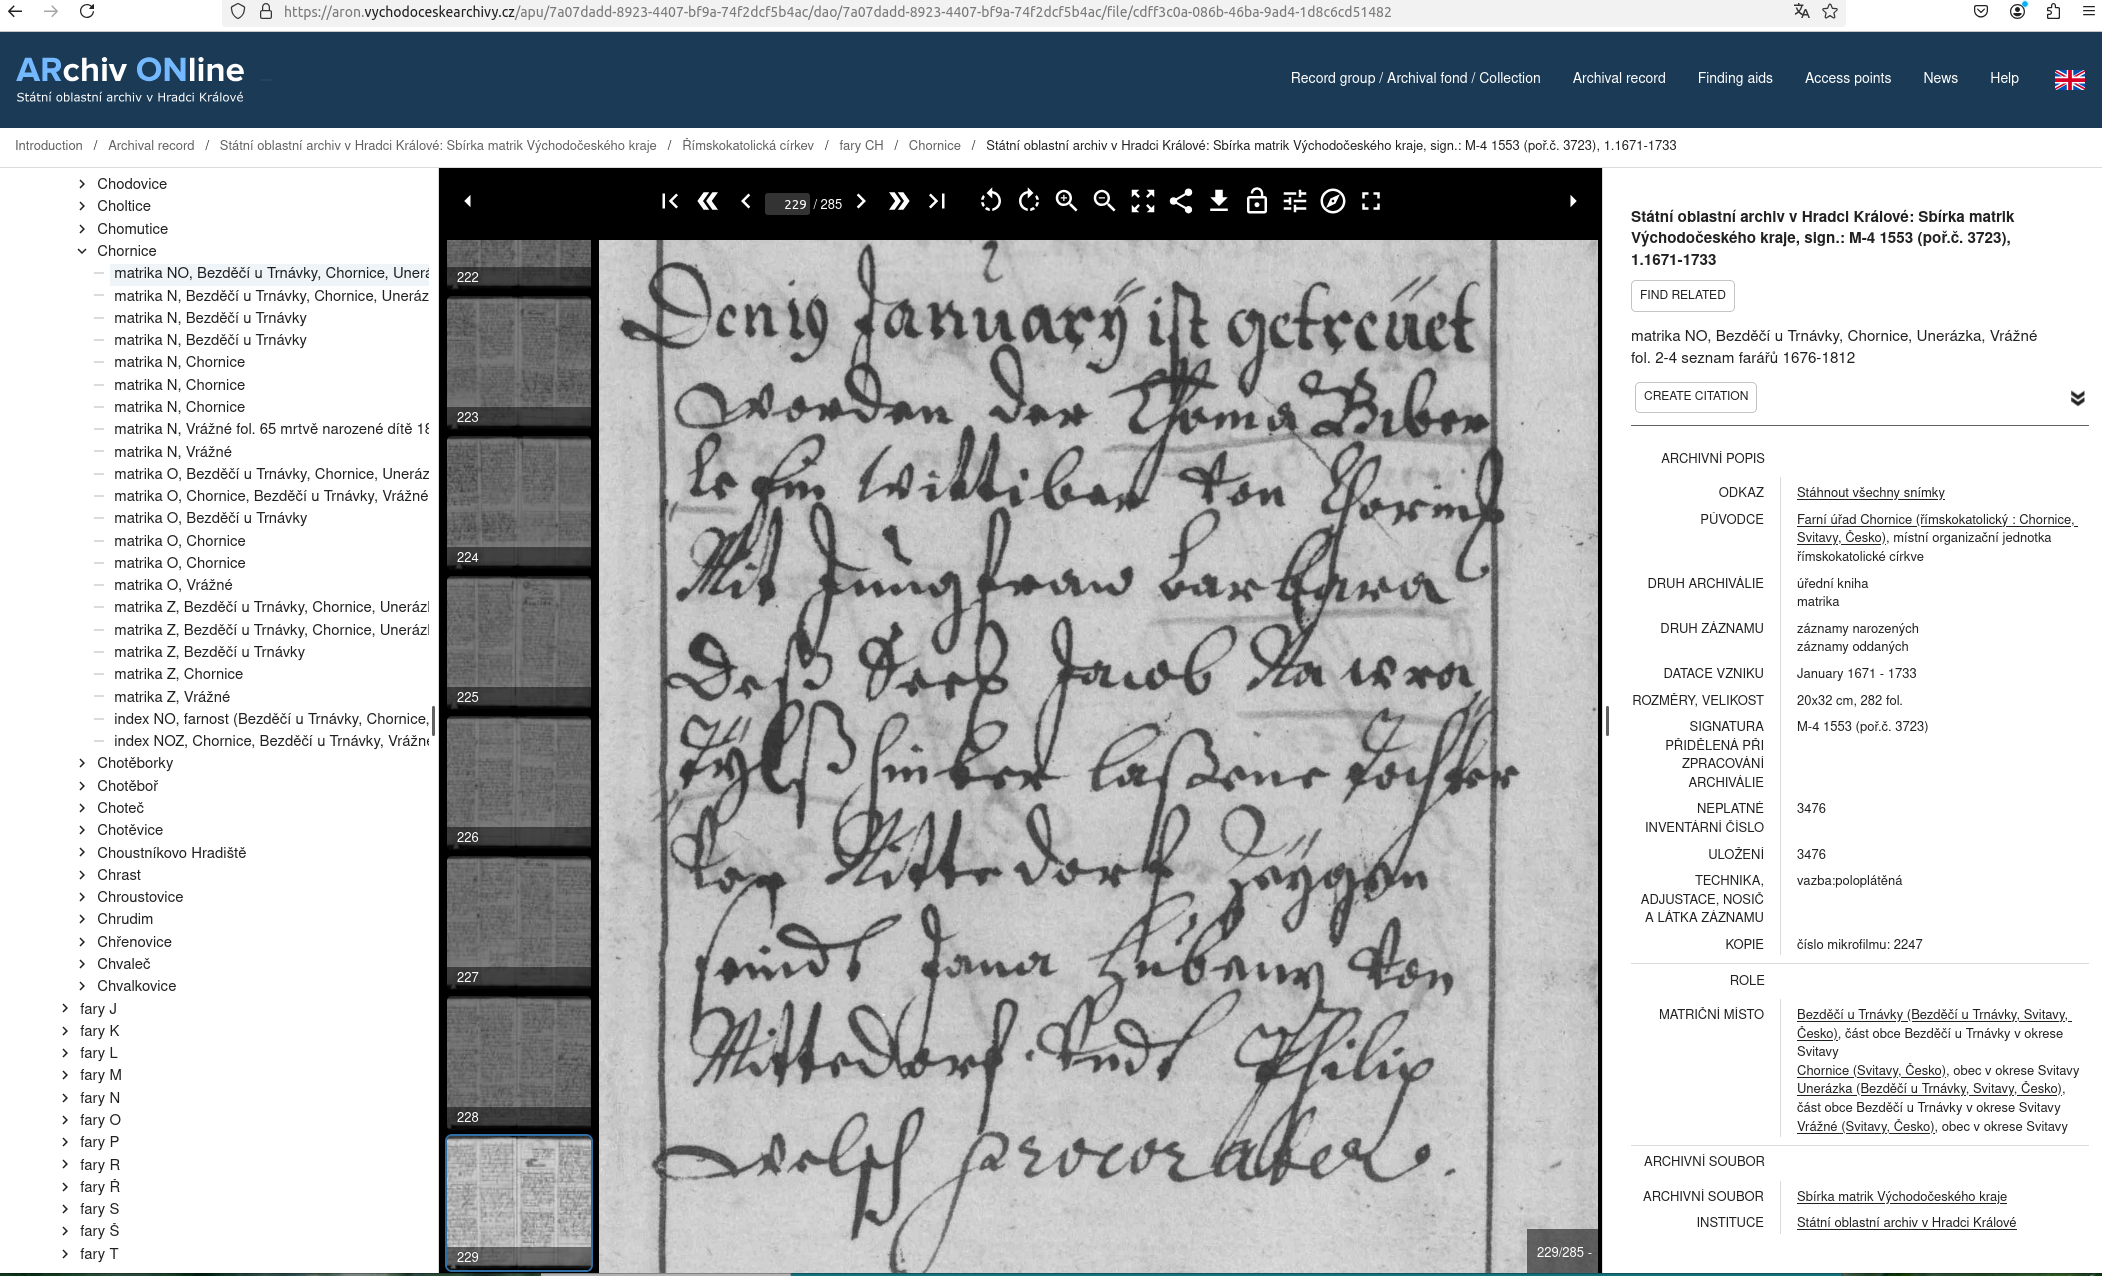 https://aron.vychodoceskearchivy.cz/apu/7a07dadd-8923-4407-bf9a-74f2dcf5b4ac/dao/7a07dadd-8923-4407-bf9a-74f2dcf5b4ac/file/cdff3c0a-086b-46ba-9ad4-1d8c6cd51482
ARchiv ONline
Státní oblastní archiv v Hradci Králové
Record group / Archival fond / Collection
Archival record
Finding aids
Access points
News
Help
Introduction / Archival record / Státní oblastní archiv v Hradci Králové: Sbírka matrik Východočeského kraje / Římskokatolická církev / fary CH / Chornice / Státní oblastní archiv v Hradci Králové: Sbírka matrik Východočeského kraje, sign.: M-4 1553 (poř.č. 3723), 1.1671-1733
Chodovice
Choltice
Chomutice
Chornice
matrika NO, Bezděčí u Trnávky, Chornice, Unerá
matrika N, Bezděčí u Trnávky, Chornice, Uneráz
matrika N, Bezděčí u Trnávky
matrika N, Bezděčí u Trnávky
matrika N, Chornice
matrika N, Chornice
matrika N, Chornice
matrika N, Vrážné fol. 65 mrtvě narozené dítě 18
matrika N, Vrážné
matrika O, Bezděčí u Trnávky, Chornice, Uneráz
matrika O, Chornice, Bezděčí u Trnávky, Vrážné
matrika O, Bezděčí u Trnávky
matrika O, Chornice
matrika O, Chornice
matrika O, Vrážné
matrika Z, Bezděčí u Trnávky, Chornice, Unerázl
matrika Z, Bezděčí u Trnávky, Chornice, Unerázl
matrika Z, Bezděčí u Trnávky
matrika Z, Chornice
matrika Z, Vrážné
index NO, farnost (Bezděčí u Trnávky, Chornice,
index NOZ, Chornice, Bezděčí u Trnávky, Vrážné
Chotěborky
Chotěboř
Choteč
Chotěvice
Choustníkovo Hradiště
Chrast
Chroustovice
Chrudim
Chřenovice
Chvaleč
Chvalkovice
fary J
fary K
fary L
fary M
fary N
fary O
fary P
fary R
fary Ř
fary S
fary Š
fary T
229 / 285
222
223
224
225
226
227
228
229
Den 19 January ist getreuet
worden der Thoma Biber
le ein wittiber von Chornitz
Mit Jungfraw barbara
deß Seel Jacob Nawra
tylß hinter laßene tochter
Von Mittedorf Zeÿgen
seindt Jana von
Mittedorf. Vndt Philip
Welsch procorater.
229/285 -
Státní oblastní archiv v Hradci Králové: Sbírka matrik Východočeského kraje, sign.: M-4 1553 (poř.č. 3723), 1.1671-1733
FIND RELATED
matrika NO, Bezděčí u Trnávky, Chornice, Unerázka, Vrážné
fol. 2-4 seznam farářů 1676-1812
CREATE CITATION
ARCHIVNÍ POPIS
ODKAZ Stáhnout všechny snímky
PŮVODCE Farní úřad Chornice (římskokatolický : Chornice, Svitavy, Česko), místní organizační jednotka římskokatolické církve
DRUH ARCHIVÁLIE úřední kniha
matrika
DRUH ZÁZNAMU záznamy narozených
záznamy oddaných
DATACE VZNIKU January 1671 - 1733
ROZMĚRY, VELIKOST 20x32 cm, 282 fol.
SIGNATURA PŘIDĚLENÁ PŘI ZPRACOVÁNÍ ARCHIVÁLIE M-4 1553 (poř.č. 3723)
NEPLATNÉ INVENTÁRNÍ ČÍSLO 3476
ULOŽENÍ 3476
TECHNIKA, ADJUSTACE, NOSIČ A LÁTKA ZÁZNAMU vazba:poloplátěná
KOPIE číslo mikrofilmu: 2247
ROLE
MATRIČNÍ MÍSTO Bezděčí u Trnávky (Bezděčí u Trnávky, Svitavy, Česko), část obce Bezděčí u Trnávky v okrese Svitavy
Chornice (Svitavy, Česko), obec v okrese Svitavy
Unerázka (Bezděčí u Trnávky, Svitavy, Česko), část obce Bezděčí u Trnávky v okrese Svitavy
Vrážné (Svitavy, Česko), obec v okrese Svitavy
ARCHIVNÍ SOUBOR
ARCHIVNÍ SOUBOR Sbírka matrik Východočeského kraje
INSTITUCE Státní oblastní archiv v Hradci Králové